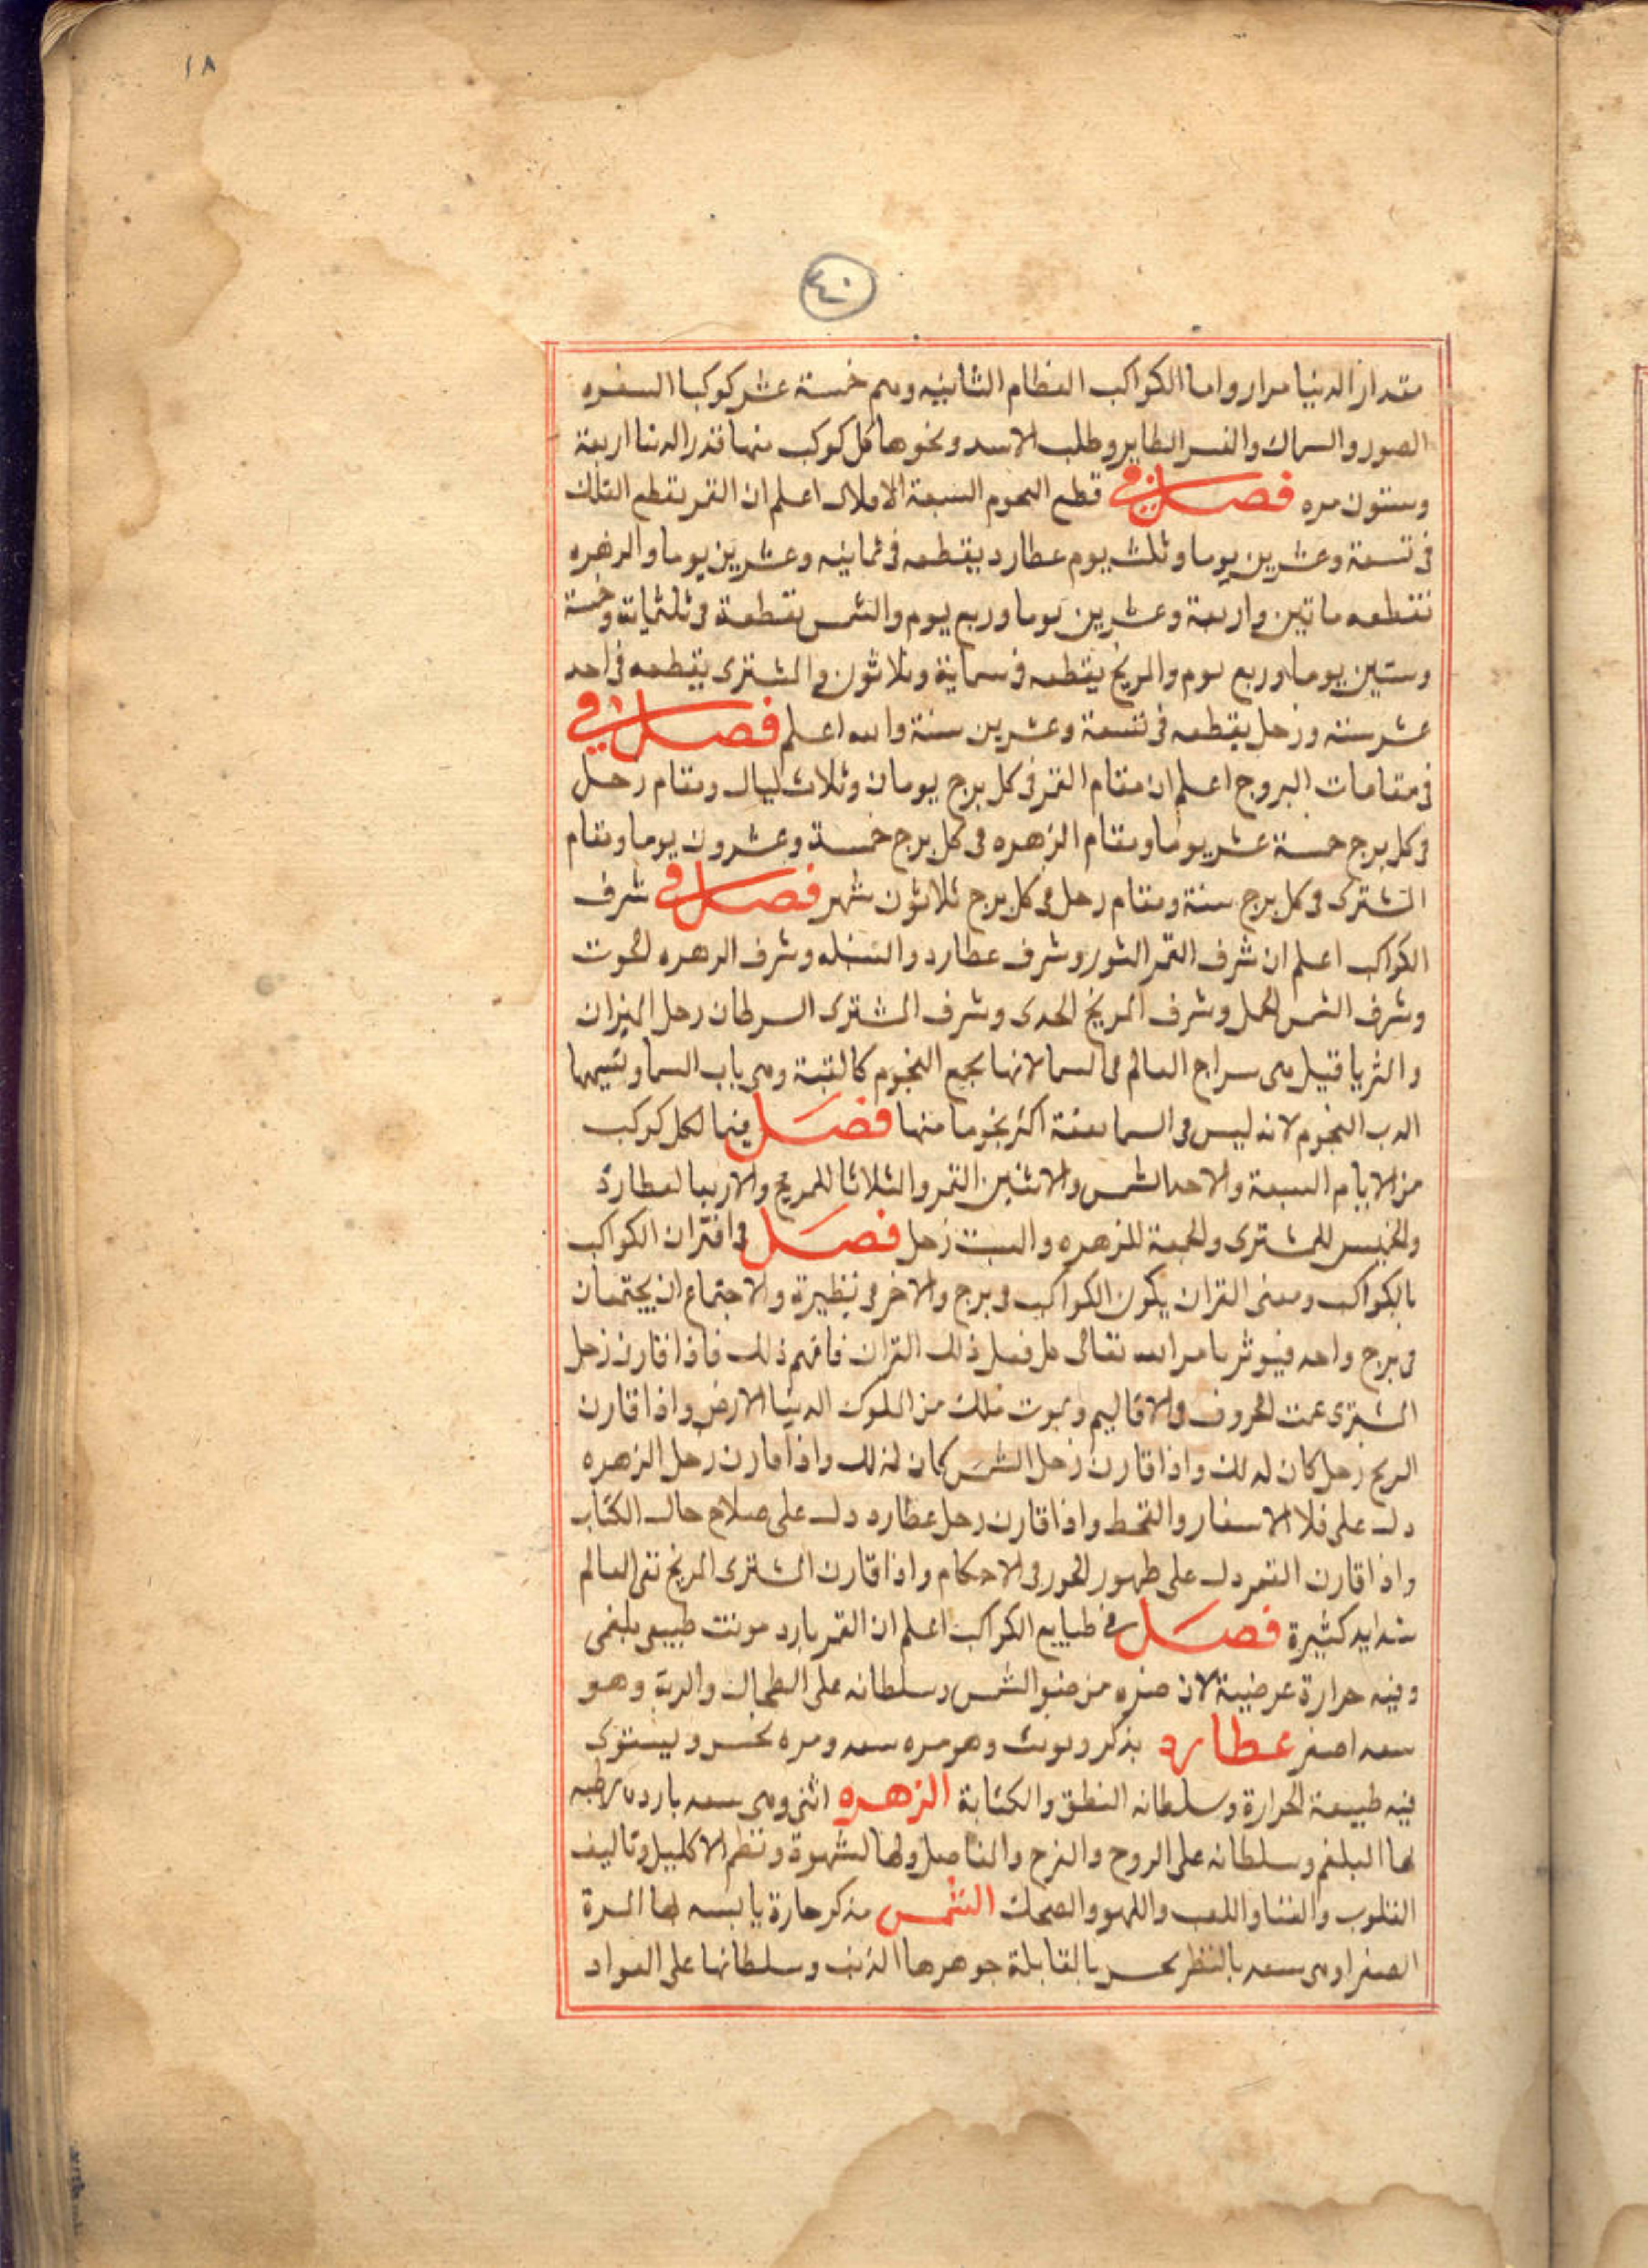 ١٨
٤٠
مقدار الدنيا مرار واما الكواكب العظام الثانيه وهم خمسة عشر كوكبا
الصور والسماك والنسر الطاير وطلب الاسد ونحوها كل كوكب منها قدر الدنيا اربعة
وستون مره فصل في قطع النجوم السبعة الافلاك اعلم ان القمر يقطع الفلك
فى تسعة وعشرين يوما وثلث يوم عطارد يقطعه فى ثمانيه وعشرين يوما والزهره
تقطعه ماتين واربعة وعشرين يوما وربع يوم والشمس تقطعة فى ثلثماتة وخمسة
وستين يوما وربع يوم والمريخ يقطعه فى سماية وثلاثون والمشترى يقطعه فى احد
عشر سنه وزحل يقطعه فى تسعة وعشرين سنة والله اعلم فصل في
فى مقامات البروج اعلم ان مقام القمر فى كل برج يومان وثلاث ليال ومقام زحل
فى كل برج خمسة عشر يوما ومقام الزهره فى كل برج خمسة وعشرون يوما ومقام
المشترى فى كل برج سنة ومقام زحل فى كل برج ثلاثون شهر فصل في شرف
الكواكب اعلم ان شرف القمر الثور وشرف عطارد والسنبله وشرف الزهره الحوت
وشرف الشمس الحمل وشرف المريخ الجدى وشرف المشترى السرطان زحل الميزان
والثريا قيل هى سراج العالم فى السما لانها بجمع النجوم كالقبة وهى باب السما وتسيمها
الدب النجوم لانه ليس فى السما بقعة اكثر نجوما منها فصل فيما لكل كوكب
من الايام السبعة والاحد الشمس والاثنين القمر والثلاثا للمريخ والاربعا لعطارد
والخميس للمشترى والجمعة للزهره والسبت زحل فصل فى اقتران الكواكب
بالكواكب ومعنى القران يكون الكواكب فى برج والاخر فى نظيرة والاجتماع ان يجتمعان
فى برج واحد فيوثر بامر الله تعالى كل فعل ذلك القران فافهم ذلك فاذا قارن زحل
المشترى عمت الحروف والاقاليم ويموت ملك من الملوك الدنيا الارض واذا قارن
المريخ زحل كان لذلك واذا قارن زحل الشمس كان لذلك واذا قارن زحل الزهره
دل على فلا الاسفار والقحط واذا قارن زحل عطارد دل على صلاح حال الكتاب
واذا قارن القمر دل على ظهور الجور فى الاحكام واذا قارن المشترى المريخ نفى العالم
شدايد كثيرة فصل في طبايع الكواكب اعلم ان القمر بارد مونث طبيعى بلغمى
وفيه حرارة عرضية لان ضوه من ضو الشمس وسلطانه على الطحال والرية وهو
سعد اصغر عطارد يذكر ويونث وهو مره سعد ومره نحس ويستوى
فيه طبيعة الحرارة وسلطانه النطق والكتابة الزهره انثى وهى سعد بارده رطبه
لها البلغم وسلطانه على الروح والفرح والمفاصل ولها الشهوة ونظم الاكليل وتاليف
القلوب والغنا واللعب واللهو والضحك الشمس مذكر حارة يابسه لها المرة
الصفرا وهى سعد بالنظر نحس بالمقابلة جوهرها الذهب وسلطانها على الفواد